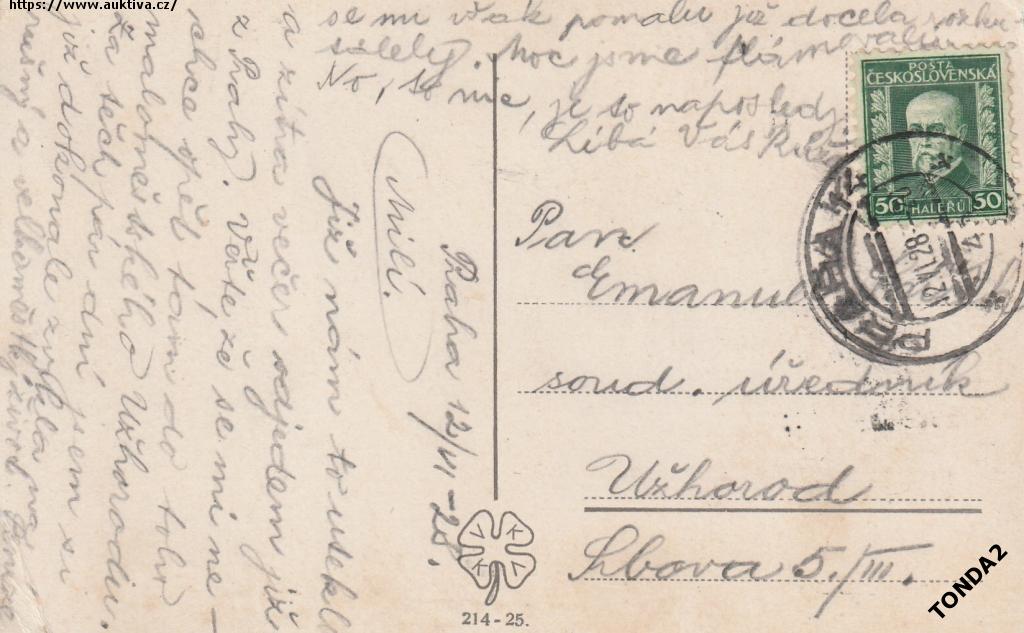 https://www.auktiva.cz/
Praha 12/VI - 28.
Milí.
Již nám to utekl
a zítra večer odjedem již
z Prahy. Věřte, že se mi ne-
chce opět tam do toho
maloměstského Užhorodu.
Za těch pár dní jsem si
již dokonale zvykla na
rušný a velkoměstský život.
se mi však pomalu již docela
Moc jsme flámovali.
No, to nic, je to naposledy
Líbá Vás
Pan
Emanuel
soud. úředník
Užhorod
5/III.
POSTA
ČESKOSLOVENSKÁ
50 HALÉŘŮ 50
PRAHA
12.VI.28
VKKL
214-25.
TONDA2